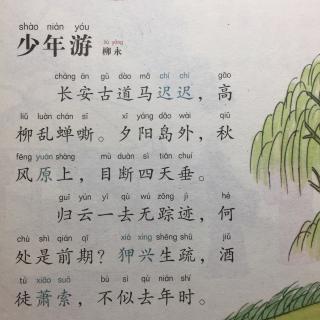 shào nián yóu
少年游 liǔ yǒng
柳永
cháng ān gǔ dào mǎ chí chí gāo
长安古道马迟迟，高
liǔ luàn chán sī xī yáng dǎo wài qiū
柳乱蝉嘶。夕阳岛外，秋
fēng yuán shàng mù duàn sì tiān chuí
风原上，目断四天垂。
guī yún yí qù wú zōng jì hé
归云一去无踪迹，何
chù shì qián qī xiá xìng shēng shū jiǔ
处是前期？狎兴生疏，酒
tú xiāo suǒ bú sì qù nián shí
徒萧索，不似去年时。